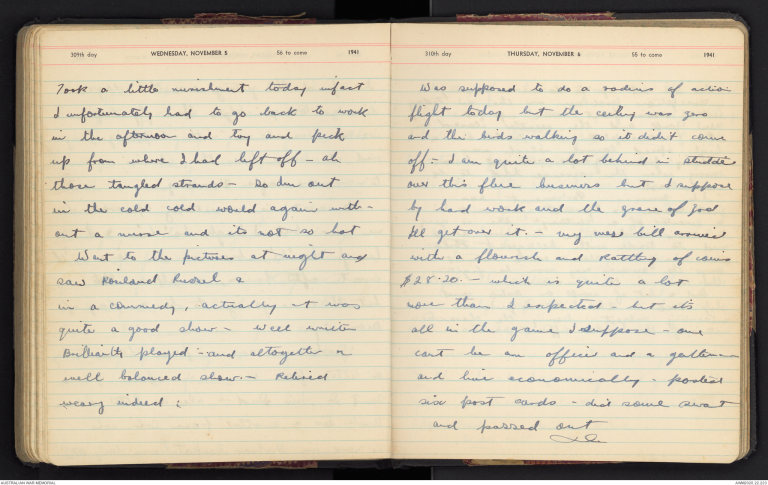 309th day WEDNESDAY, NOVEMBER 5 56 to come 1941
Took a little nurishment today infact
I unfortunately had to go back to work
in the afternoon and try and pick
up from where I had left off - ah
those tangled strands - So I'm out
in the cold cold world again with-
out a nurse and its not so hot
Went to the pictures at night and
saw Rosland Russel &
in a commedy, actually it was
quite a good show - well written
Brilliantly played - and altogether a
well balanced show. - Retired
weary indeed ;
310th day THURSDAY, NOVEMBER 6 55 to come 1941
Was supposed to do a radius of action
flight today but the ceiling was zero
and the birds walking so it didn't come
off - I am quite a lot behind in
over this flue buisness but I suppose
by hard work and the grace of God
Ill get over it. - my mess bill arrived
with a flourish and rattling of coins
$28.20. - which is quite a lot
more than I expected - but its
all in the game I suppose - one
cant be an officer and a
and live economically - posted
six post cards - did some swat
and passed out
AUSTRALIAN WAR MEMORIAL